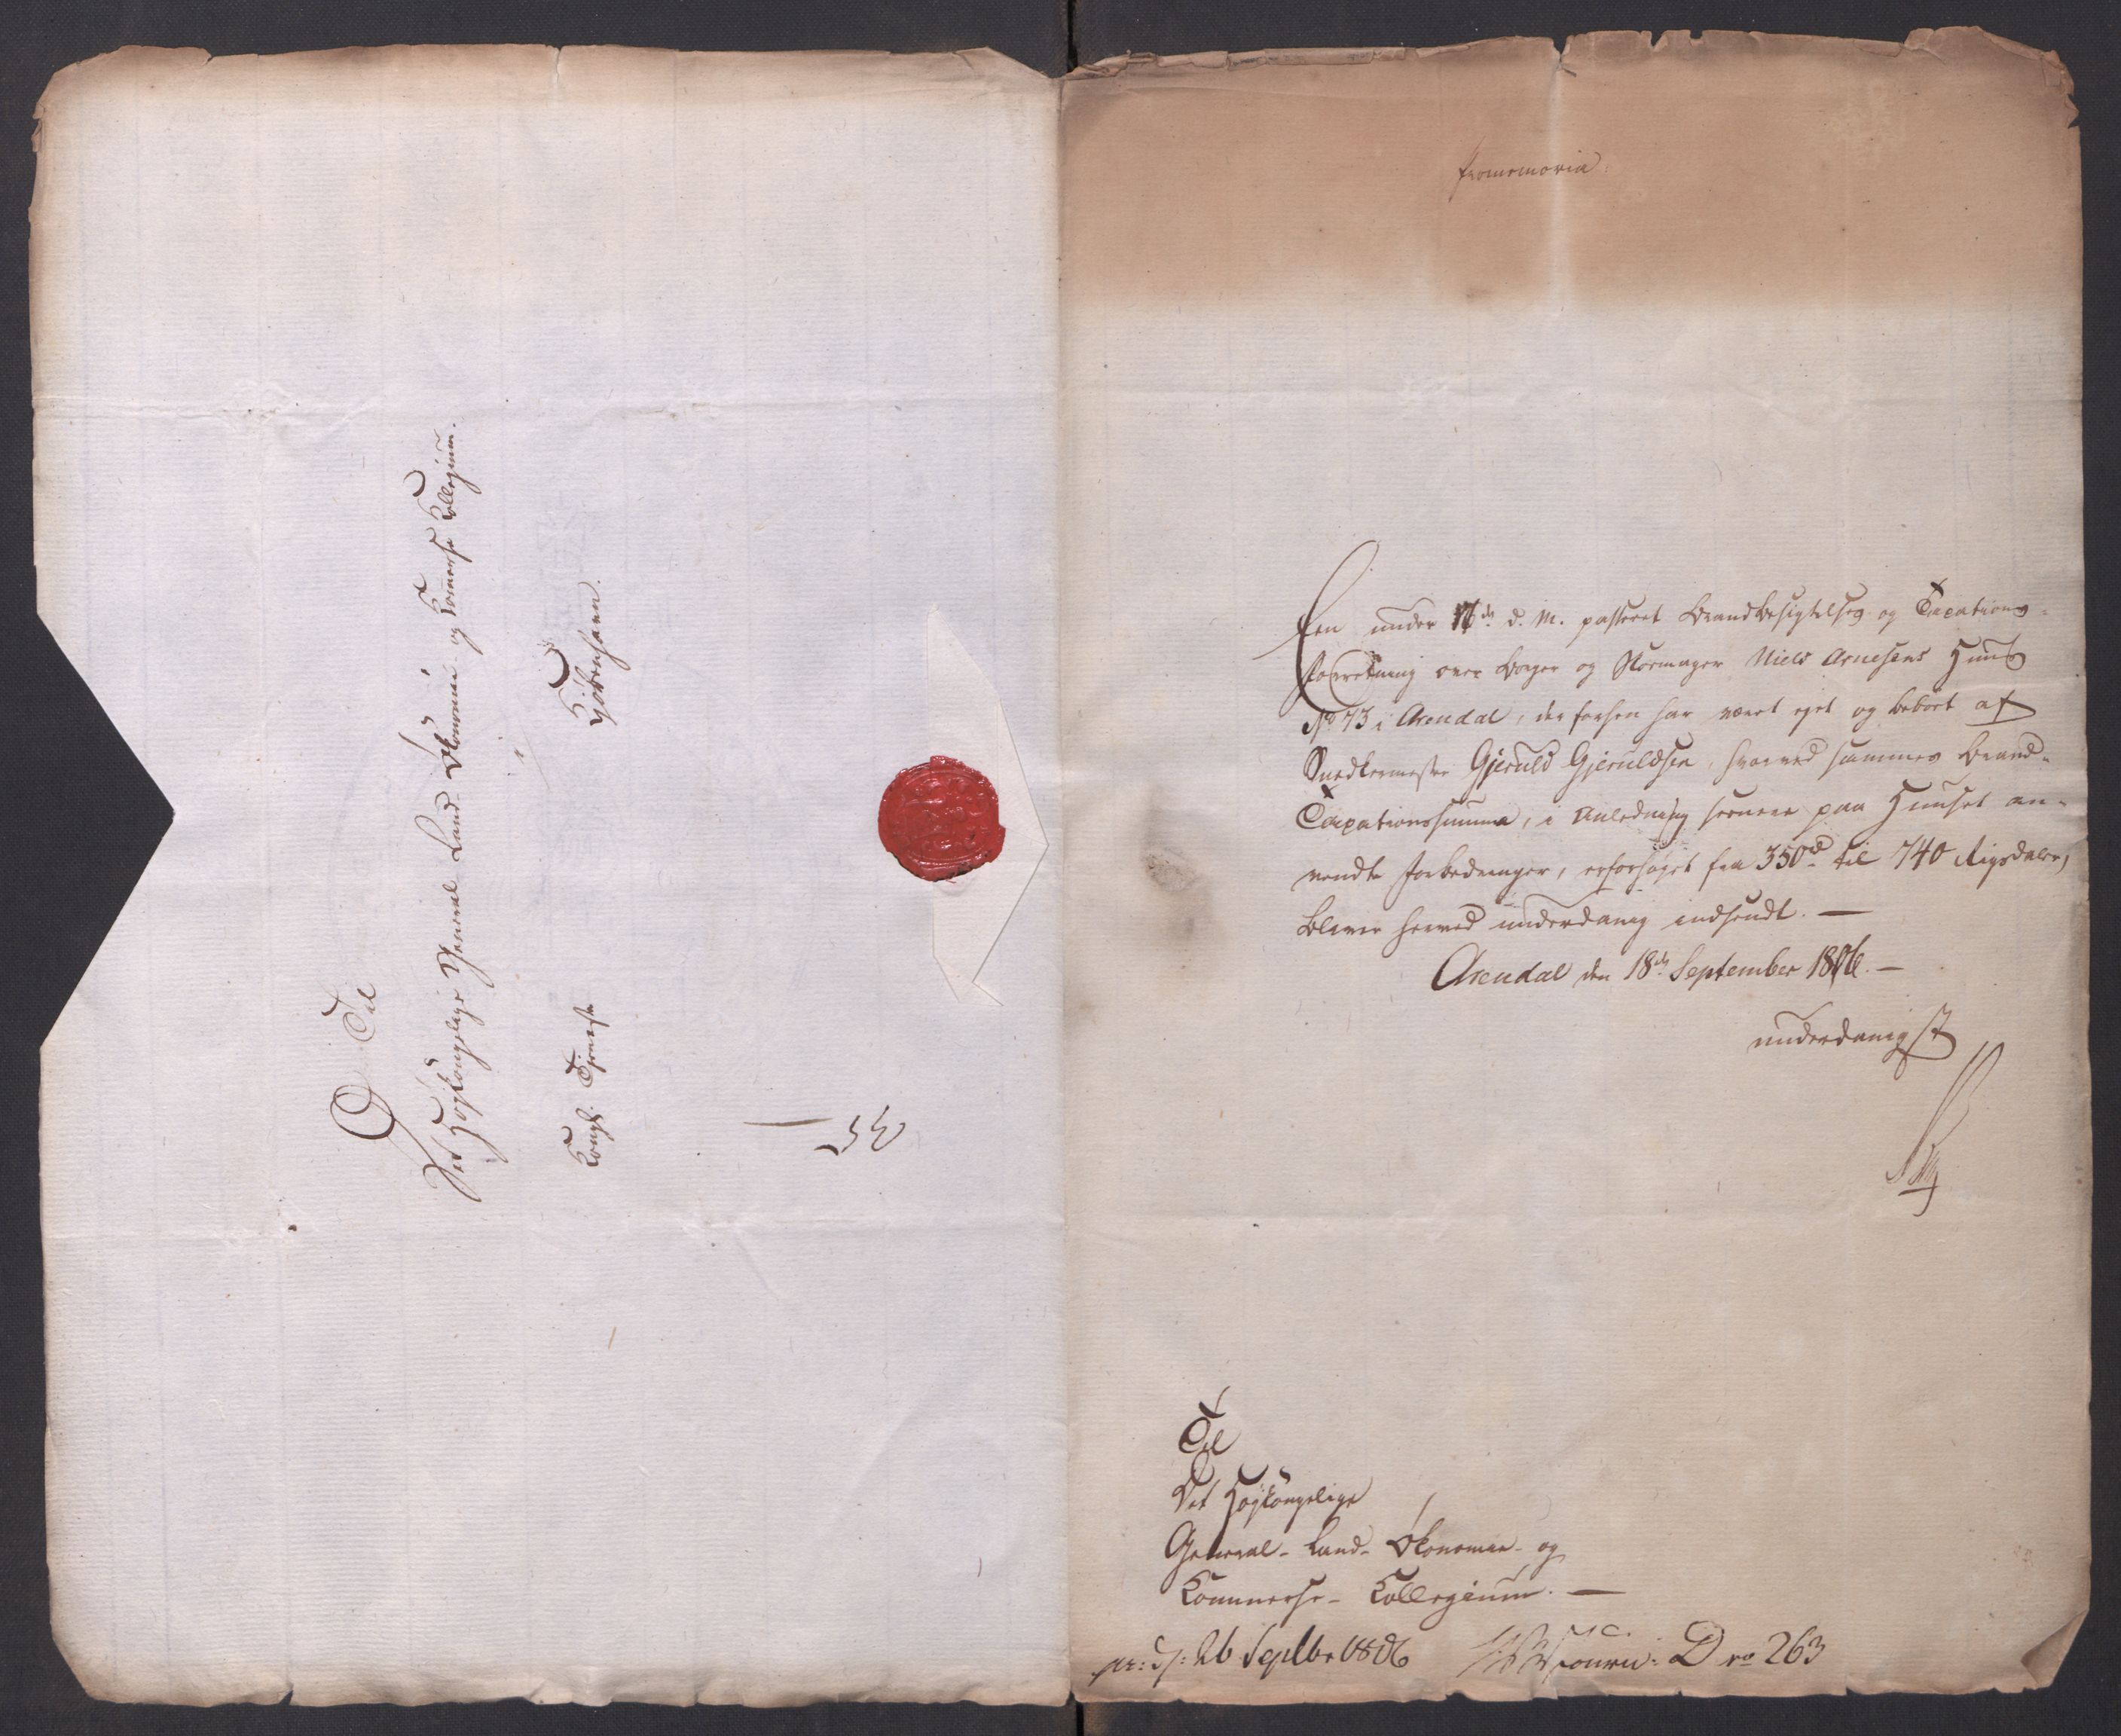 Til
Det Højkongelige General Land Økonomie og Kommerse Kollegium.
i
Kjöbenhavn.
Kongl. Tjeneste
Promemoria.
Een under 17de d. M. passeret Brandbesigtelses og Taxations-
Forretning over Borger og Skomager Niels Arnesens Huus
No 73 i Arendal, der forhen har været ejet og beboet af
Snedkermester Gjeruld Gjeruldsen, hvorved sammes Brand-
Taxationssumma, i Anledning senere paa Huuset an-
vendte Forbedringer, er forhøjet fra 350rd til 740 Rigsdaler,
bliver herved underdanig indsendt. —
Arendal den 18de September 1806. —
underdanigst
Til
Det Højkongelige
General- Land- Økonomie- og
Kommerse- Kollegium. —
pr: d: 26 Septbr 1806 D no 263